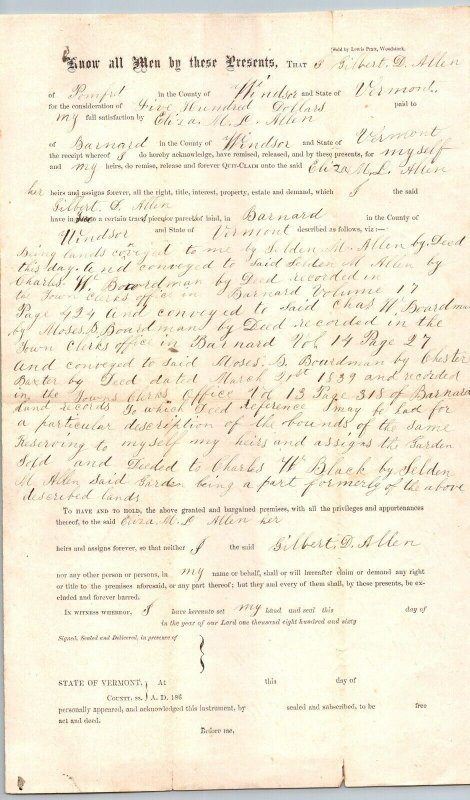 Sold by Lewis Pratt, Woodstock.
Know all Men by these Presents, THAT I Gilbert. D. Allen
of Pomfret in the County of Windsor and State of Vermont
for the consideration of Five Hundred Dollars paid to
my full satisfaction by Eliza. M. L. Allen
of Barnard in the County of Windsor and State of Vermont
the receipt whereof I do hereby acknowledge, have remised, released, and by these presents, for myself
and my heirs, do remise, release and forever QUIT-CLAIM unto the said Eliza M. L. Allen
her heirs and assigns forever, all the right, title, interest, property, estate and demand, which I the said
Gilbert D. Allen
have in to a certain tract, piece or parcel of land, in Barnard in the County of
Windsor and State of Vermont described as follows, viz:—
Being lands conveyed to me by Selden M. Allen by Deed
this day. and conveyed to said Selden M Allen by
Charles W. Boardman by Deed recorded in
the Town Clerks office in Barnard Volume 17
Page 424 and conveyed to said Chas W. Boardman
by Moses. B Boardman by Deed recorded in the
Town Clerks office in Barnard Vol 14 Page 27
and conveyed to said Moses. B. Boardman by Chester
Baxter by Deed dated March 21st 1839 and recorded
in the Towns Clerks Office Vol 13 Page 318 of Barnard
Land records To which Deed reference may be had for
a particular description of the bounds of the same
Reserving to myself my heirs and assigns the Garden
Sold and Deeded to Charles W Black by Selden
M Allen said Garden being a part formerly of the above
described lands
TO HAVE AND TO HOLD, the above granted and bargained premises, with all the privileges and appurtenances
thereof, to the said Eliza M. L. Allen her
heirs and assigns forever, so that neither I the said Gilbert. D. Allen
nor any other person or persons, in my name or behalf, shall or will hereafter claim or demand any right
or title to the premises aforesaid, or any part thereof; but they and every of them shall, by these presents, be ex-
cluded and forever barred.
IN WITNESS WHEREOF, I have hereunto set my hand and seal this day of
in the year of our Lord one thousand eight hundred and sixty
Signed, Sealed and Delivered, in presence of
STATE OF VERMONT, At this day of
COUNTY, ss. A. D. 186
personally appeared, and acknowledged this instrument, by sealed and subscribed, to be free
act and deed.
Before me,